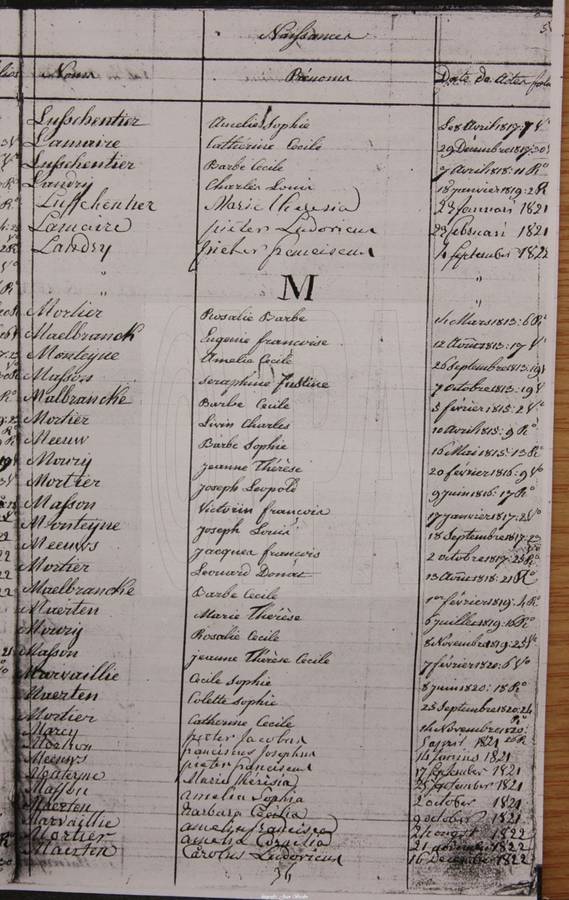 Naissances
Noms Prénoms Date des Actes
Lusschentier Amelie Sophie Le 8 Avril 1817: 7 Vº
Lamaire Cathérine Cecile 29 Décembre 1817:
Lusschentier Barbe Cecile 7 Avril 1818: 11 Rº
Landry Charles Louis 18 janvier 1819: 2 R
Lusschentier Marie Theresia 23 Januari 1821
Lamaire pieter Ludovicus 23 februari 1821
Landry pieter franciscus 4 september 1822
" " "
M "
Mortier Rosalie Barbe Mars 1813: 6 Rº
Maelbranck Eugenie francoise 12 Août 1813: 17 Vº
Monteyne Amelie Cecile 26 Septembre 1813: 19
Masson Seraphine Justine 7 octobre 1813: 19 V
Malbrancke Barbe Cecile 5 février 1815: 2 Vº
Mortier Livin Charles 10 Avril 1815: 9 Rº
Meeuw Barbe Sophie 16 Mai 1815: 13 Rº
Moury Jeanne Thérèse 20 février 1816: 9 Vº
Mortier Joseph Leopold 9 juin 1816: 17 Rº
Masson Victorin francois 17 janvier 1817: 2 Vº
Monteyne Joseph Louis 18 Septembre 1817:
Meeuws Jacques francois 2 octobre 1817: 25 Rº
Mortier Leonard Donat 13 Août 1818: 21 Rº
Maelbrancke Barbe Cecile 1er février 1819: 4 Rº
Maerten Marie Thérèse 6 juillet 1819: 16 Rº
Moury Rosalie Cecile 8 Novembre 1819: 25 Vº
Masson jeanne Thérèse Cecile 7 février 1820: 6 Vº
Marvaillie Cecile Sophie 8 juin 1820: 18 Rº
Maerten Colette Sophie 25 Septembre 1820: 24 Rº
Mortier Catherine Cecile 14 Novembre 1820:
Marcy pieter Jacobus april 1821
franciscus Josephus 14 Junius 1821
Meeuws pieter franciscus 17 september 1821
Monteyne Maria Thérésia 25 september 1821
Masson Amelia Sophia 2 october 1821
Maerten Barbara Cecilia 9 october 1821
Marvaillie francisca 1822
Mortier Amelia Cornelia 21 1822
Maerten Carolus Ludovicus 16 December 1822